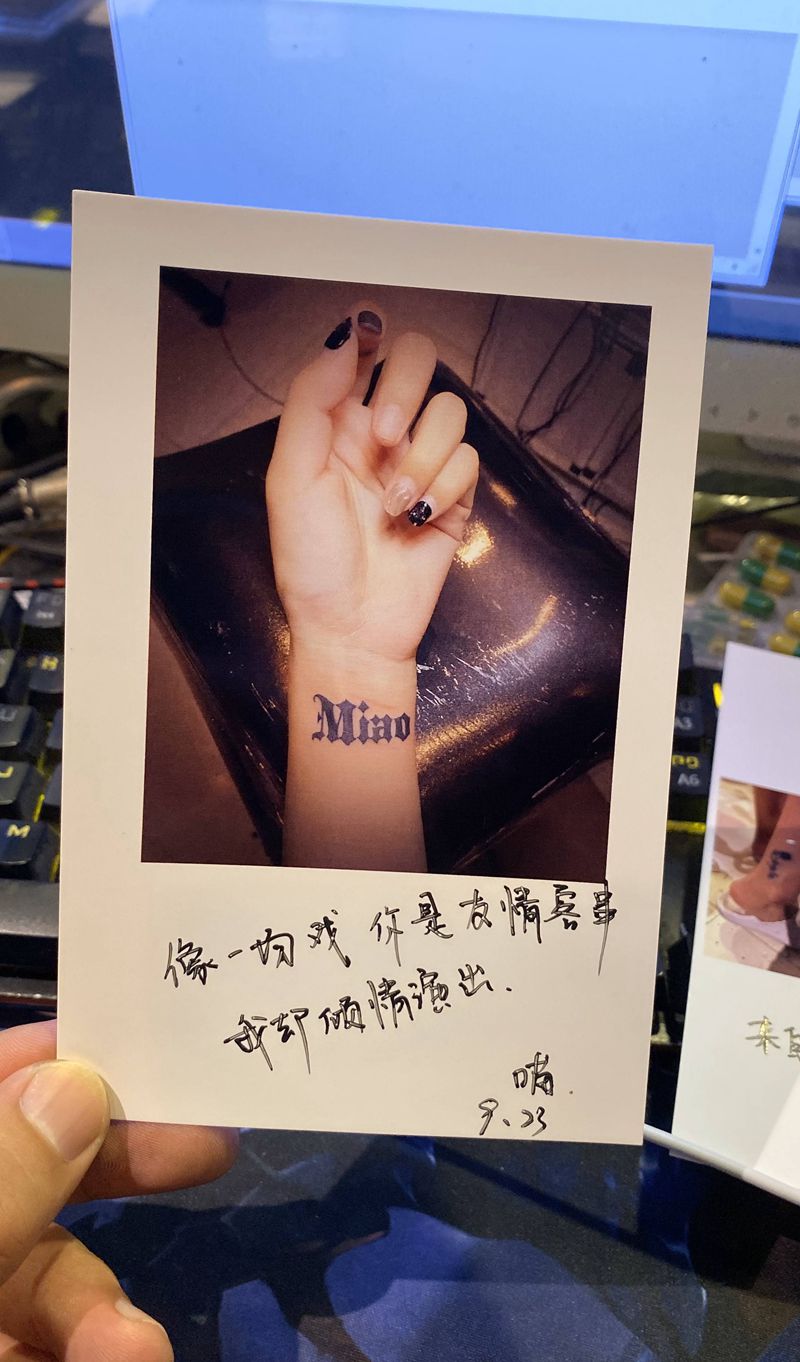 Miao
像一场戏 你是友情客串
我却倾情演出.
哨.
9.23
M
H
A3
A6